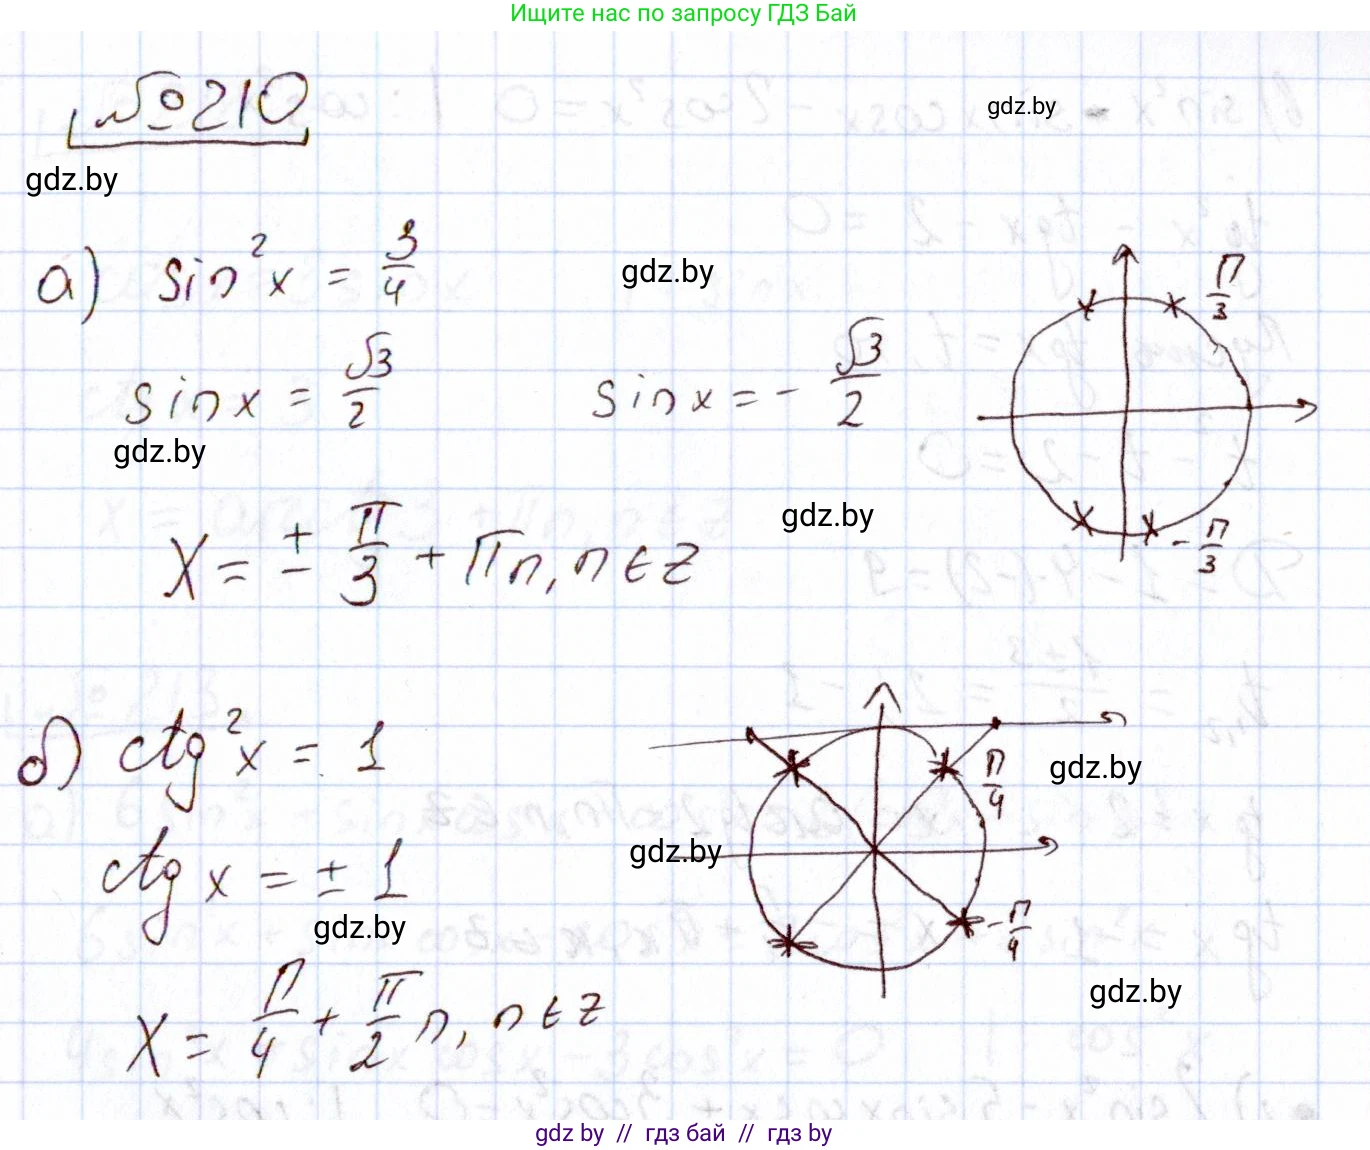 Ищите нас по запросу ГДЗ Бай
№210
gdz.by
gdz.by
а) sin²x = 3/4
gdz.by
π/3
sinx = √3/2 sinx = - √3/2
gdz.by
gdz.by
x = ± π/3 + πn, n ∈ Z
- π/3
б) ctg²x = 1
π/4
gdz.by
gdz.by
ctg x = ± 1
gdz.by
- π/4
x = π/4 + π/2 n, n ∈ Z
gdz.by
gdz.by // гдз бай // гдз by